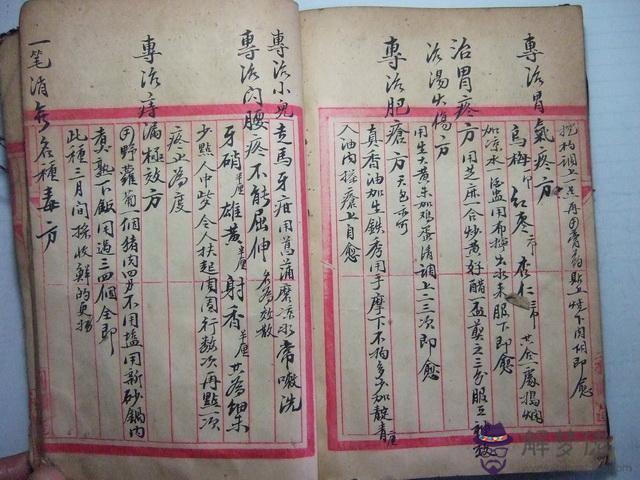 挖构調上一点再用膏药貼上燒下肉用即愈
專治胃氣疼方
烏梅 紅枣 杏仁 共合一處搗爛
加凉水一大盅用布擰出水来服下即愈
治胃疼方 用芝麻合炒黄好醋一盃煎之三分服立效
治湯火傷方
用生大黄末加鸡蛋清調上二三次即愈
專治肥瘡方 天包亦可
真香油加生鉄秀用手摩下不拘多少加靛青
入油内搽瘡上自愈
專治小兒走馬牙疳用菖蒲磨凉水常噙洗
專治闪腰疼不能屈伸
牙硝 雄黄 射香 共為细末
少點人中些令人扶起頁周行数次再點一次
疼止為度
專治痔漏極效方
用野蘿蔔一個猪肉四刄不用塩用新砂鍋内
煮熟下飯用過三四個全即
此種三月間採收鮮的更
一笔消各種毒方
解梦佬